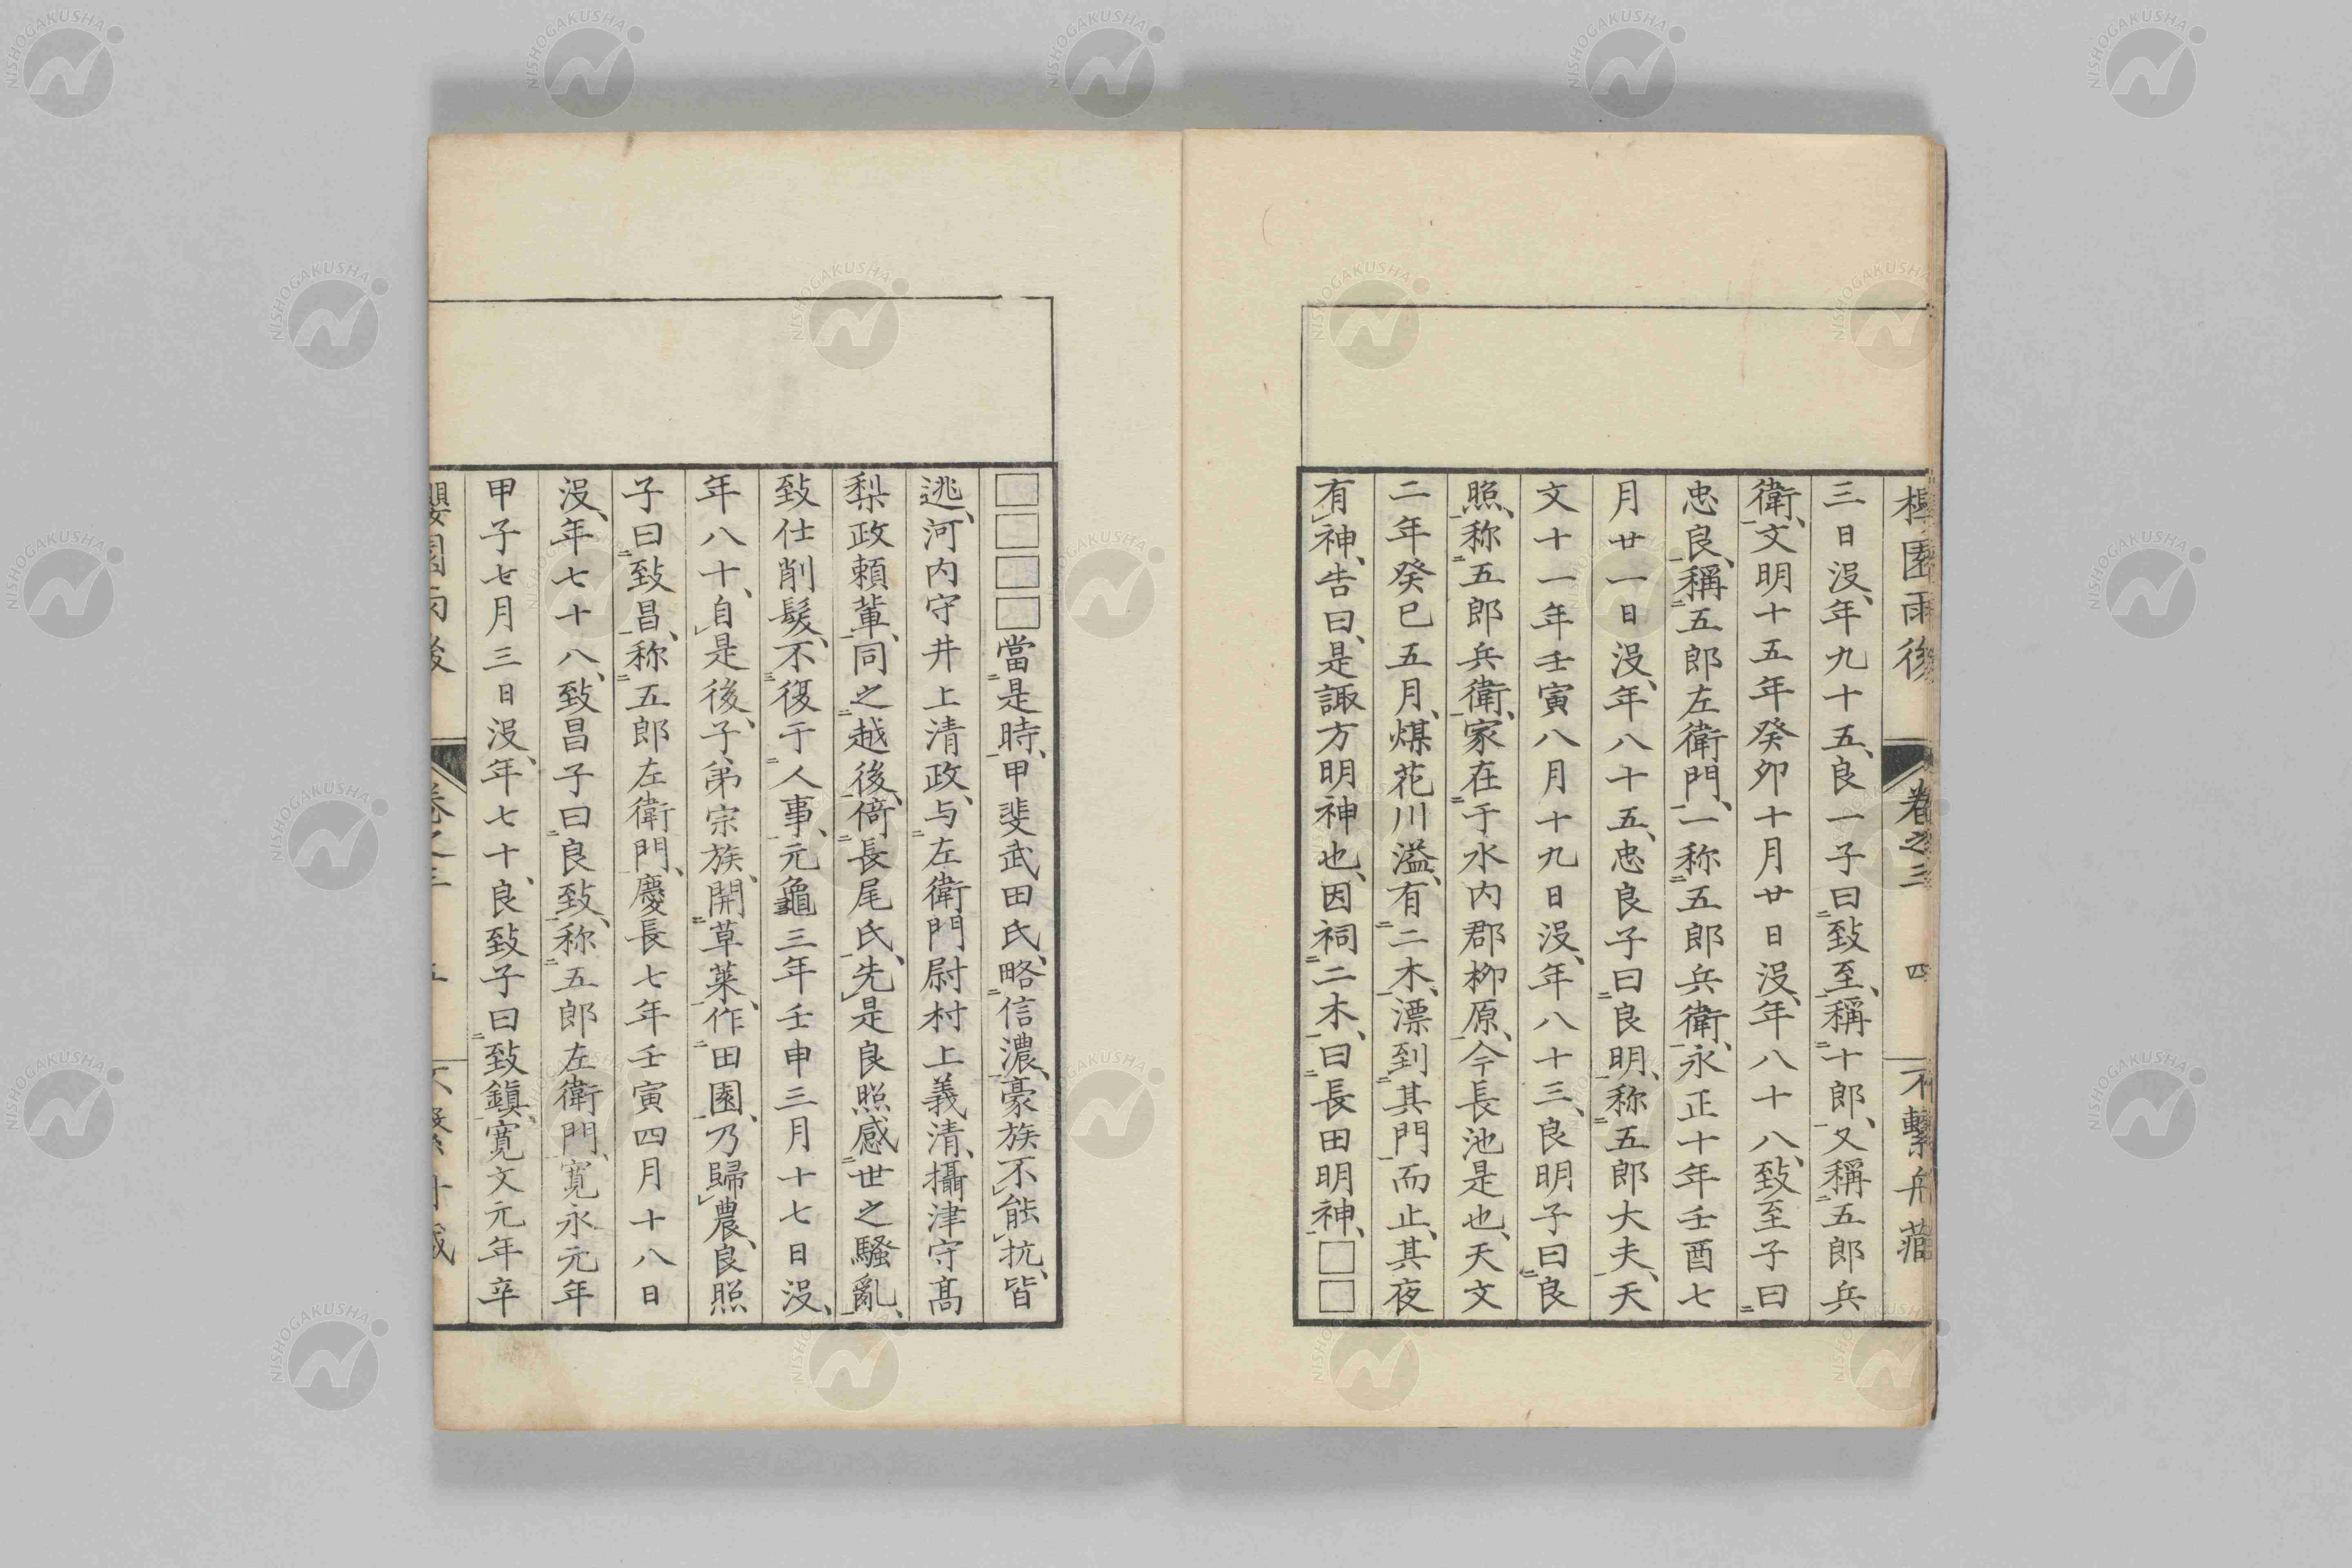 櫻園雨後 卷之三 四 不繫舟藏
三日沒、年九十五、良一子曰致至、稱十郎、又稱五郎兵
衛、文明十五年癸卯十月廿日沒、年八十八、致至子曰
忠良、稱五郎左衛門、一称五郎兵衛、永正十年壬酉七
月廿一日沒、年八十五、忠良子曰良明、称五郎大夫、天
文十一年壬寅八月十九日沒、年八十三、良明子曰良
照、称五郎兵衛、家在于水内郡柳原、今長池是也、天文
二年癸巳五月、煤花川溢、有二木、漂到其門而止、其夜
有神、告曰、是諏方明神也、因祠二木、曰長田明神、□□
□□□□當是時、甲斐武田氏、略信濃、豪族不能抗、皆
逃、河内守井上清政、与左衛門尉村上義清、攝津守髙
梨政頼輩、同之越後、倚長尾氏、先是良照感世之騷亂、
致仕削髮、不復于人事、元龜三年壬申三月十七日沒、
年八十、自是後、子弟宗族、開草萊、作田園、乃歸農、良照
子曰致昌、称五郎左衛門、慶長七年壬寅四月十八日
沒、年七十八、致昌子曰良致、称五郎左衛門、寛永元年
甲子七月三日沒、年七十、良致子曰致鎭、寛文元年卒
櫻園雨後 卷之三 五 不繫舟藏
NISHOGAKUSHA